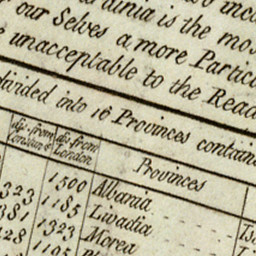 dinia is the mos
our Selves a more Partic
unacceptable to the Read
divided into 16 Provinces contain
dis. from dis. from
London
Provinces
323 1500 Albania
381 1185 Livadia
428 1323 Morea
1195